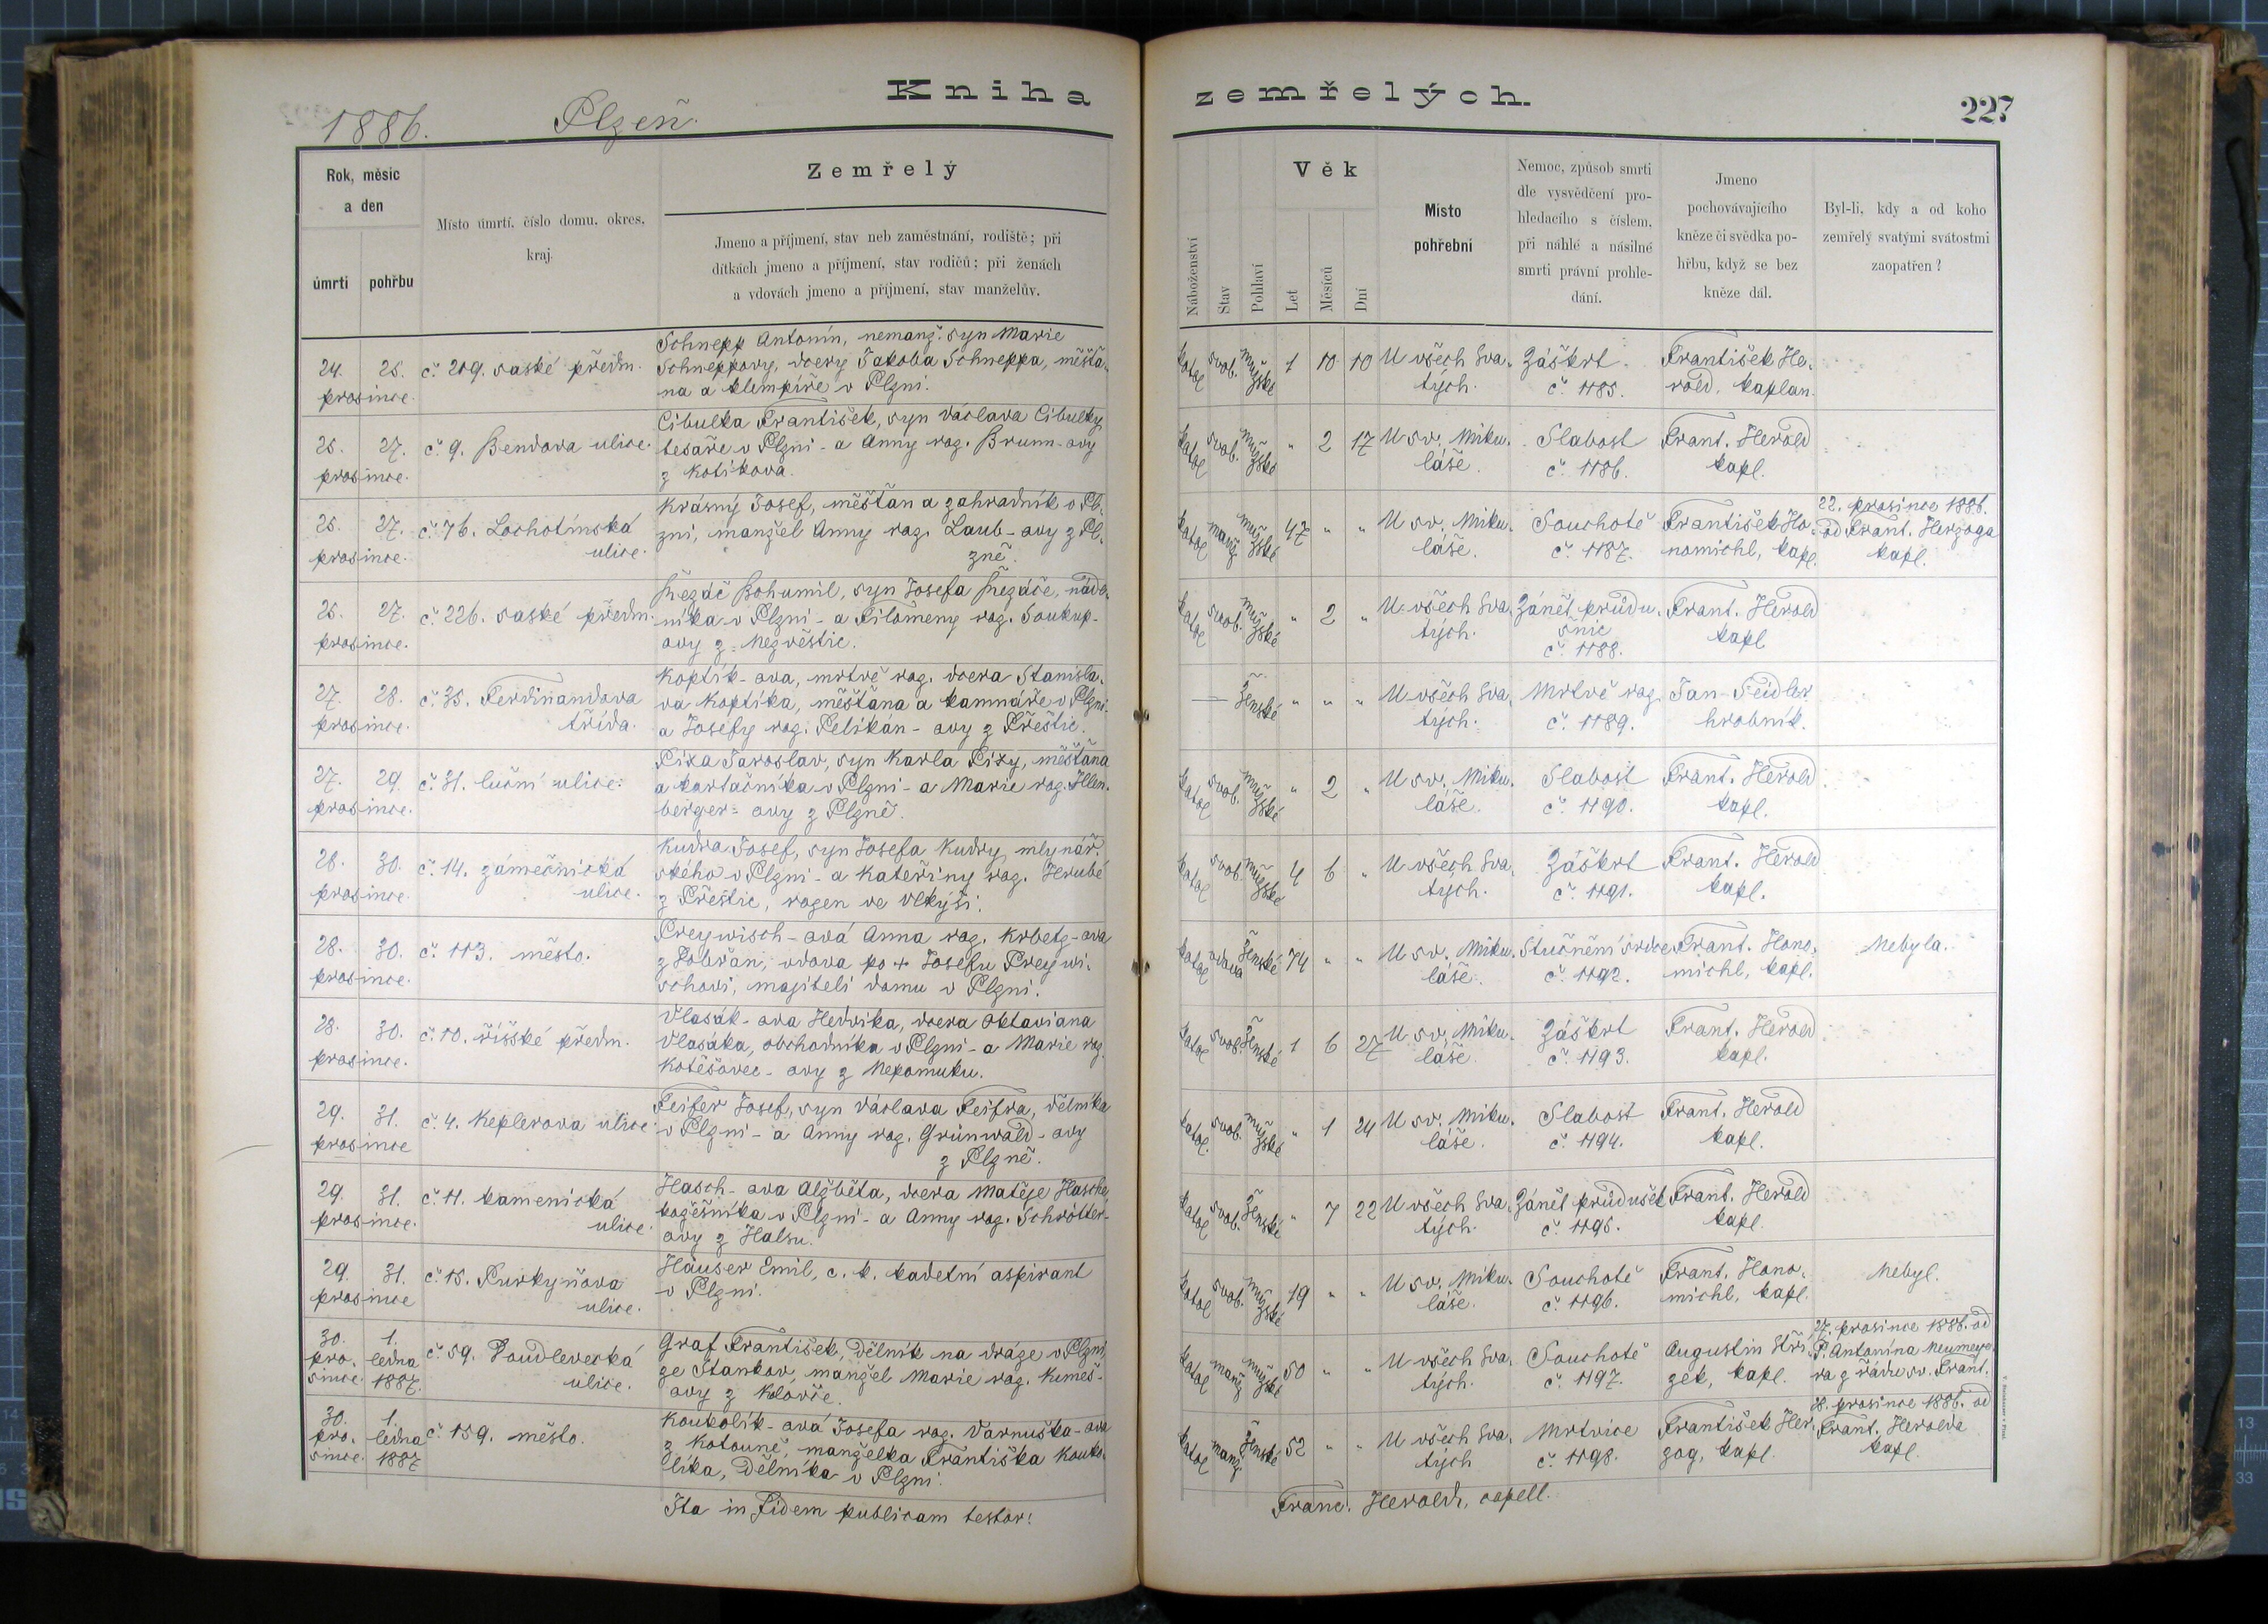 Kniha zemřelých.
1886. Plzeň.
227
Rok, měsíc
a den
úmrtí
pohřbu
Místo úmrtí, číslo domu, okres,
kraj.
Zemřelý
Jmeno a příjmení, stav neb zaměstnání, rodiště; při
dítkách jmeno a příjmení, stav rodičů; při ženách
a vdovách jmeno a příjmení, stav manželův.
Náboženství
Stav
Pohlaví
Věk
Let
Měsíců
Dní
Místo
pohřební
Nemoc, způsob smrti
dle vysvědčení pro-
hledacího s číslem,
při náhlé a násilné
smrti právní prohle-
dání.
Jmeno
pochovávajícího
kněze či svědka po-
hřbu, když se bez
kněze dál.
Byl-li, kdy a od koho
zemřelý svatými svátostmi
zaopatřen?
24. 26.
prosince.
č. 209. saské předm.
Schnepp Antonín, nemanž. syn Marie
Schneppovy, dcery Jakoba Schneppa, měšťa-
na a klempíře v Plzni.
katol svob. mužské 1 10 10
U všech Sva-
tých.
Záškrt.
č. 1185.
František He-
rold, kaplan.
25. 27.
prosince.
č. 9. Bendova ulice.
Cibulka František, syn Václava Cibulky,
tesaře v Plzni - a Anny roz. Brunn-ovy
z Kotíkova.
katol svob. mužské " 2 17
U sv. Miku-
láše.
Slabost
č. 1186.
Frant. Herold
kapl.
25. 27.
prosince.
č. 76. Lochotínská
ulice.
Krásný Josef, měšťan a zahradník v Pl-
zni, manžel Anny roz. Laub-ovy z Pl-
zně.
katol manž mužské 47 " "
U sv. Miku-
láše.
Souchotě
č. 1187.
František Ho-
nomichl, kapl.
22. prosince 1886.
od Frant. Herzoga
kapl.
25. 27.
prosince.
č. 226. saské předm.
Řezáč Bohumil, syn Josefa Řezáče, nádo-
níka v Plzni - a Filomeny roz. Soukup-
ovy z Nezvěstic.
katol svob. mužské " 2 "
U všech Sva-
tých.
Zánět průdu-
šnic
č. 1188.
Frant. Herold
kapl
27. 28.
prosince.
č. 35. Ferdinandova
třída.
Koptík-ova, mrtvě roz. dcera Stanisla-
va Koptíka, měšťana a kamnáře v Plzni
a Josefy roz. Pelikán-ovy z Přeštic.
— ženské " " "
U všech Sva-
tých.
Mrtvě roz
č. 1189.
Jan Feidler
hrobník.
27. 29.
prosince.
č. 31. luční ulice.
Pixa Jaroslav, syn Karla Pixy, měšťana
a kartáčníka v Plzni - a Marie roz. Illen-
berger-ovy z Plzně.
katol svob. mužské " 2 "
U sv. Miku-
láše.
Slabost
č. 1190.
Frant. Herold
kapl.
28. 30.
prosince.
č. 14. zámečnická
ulice.
Kudra Josef, syn Josefa Kudry, mlynář-
ského v Plzni - a Kateřiny roz. Hrubé
z Přeštic, rozen ve Vlkýši.
katol svob. mužské 4 6 "
U všech Sva-
tých.
Záškrt
č. 1191.
Frant. Herold
kapl.
28. 30.
prosince.
č. 113. město.
Preywisch-ová Anna roz. Krbetz-ova
z Dobřan, vdova po + Josefu Preywi-
schovi, majiteli domu v Plzni.
katol vdova ženské 74 " "
U sv. Miku-
láše.
Stučnění srdce
č. 1192.
Frant. Hono-
michl, kapl.
Nebyla.
28. 30.
prosince.
č. 10. říšské předm.
Vlasák-ova Hedvika, dcera Oktaviana
Vlasáka, obchodníka v Plzni - a Marie roz.
Kotěšovec-ovy z Nepomuku.
katol svob. ženské 1 6 27
U sv. Miku-
láše.
Záškrt
č. 1193.
Frant. Herold
kapl.
29. 31.
prosince
č. 4. Keplerova ulice.
Feifer Josef, syn Václava Feifra, dělníka
v Plzni - a Anny roz. Grünwald-ovy
z Plzně.
katol. svob. mužské " 1 24
U sv. Miku-
láše.
Slabost
č. 1194.
Frant. Herold
kapl.
29. 31.
prosince.
č. 11. kamenická
ulice.
Hasch-ova Alžběta, dcera Matěje Hasche,
kožešníka v Plzni - a Anny roz. Schrötter-
ovy z Halsu.
katol svob. ženské " 7 22
U všech Sva-
tých.
Zánět průdušek
č. 1195.
Frant. Herold
kapl.
29. 31.
prosince
č. 15. Purkyňova
ulice.
Häuser Emil, c. k. kadetní aspirant
v Plzni.
katol svob. mužské 19 " "
U sv. Miku-
láše.
Souchotě
č. 1196.
Frant. Hono-
michl, kapl.
Nebyl.
30. 1.
pro- ledna
since 1887.
č. 59. Doudlevecká
ulice.
Graf František, dělník na dráze v Plzni,
ze Stankov, manžel Marie roz. Kumeš-
ovy z Koloveče.
katol manž mužské 50 " "
U všech Sva-
tých.
Souchotě
č. 1197.
Augustin Stří-
žek, kapl.
27. prosince 1886. od
P. Antonína Neumeye-
ra z řádu sv. Frant.
30. 1.
pro- ledna
since. 1887
č. 159. město.
Koukolík-ová Josefa roz. Varnuška-ova
z Kotouně, manželka Františka Kouko-
líka, dělníka v Plzni.
katol manž ženské 52 " "
U všech Sva-
tých
Mrtvice
č. 1198.
František Her-
zog, kapl.
28. prosince 1886. od
Frant. Herolda
kapl.
Ita in fidem publicam testor:
Franc. Herold, capell.